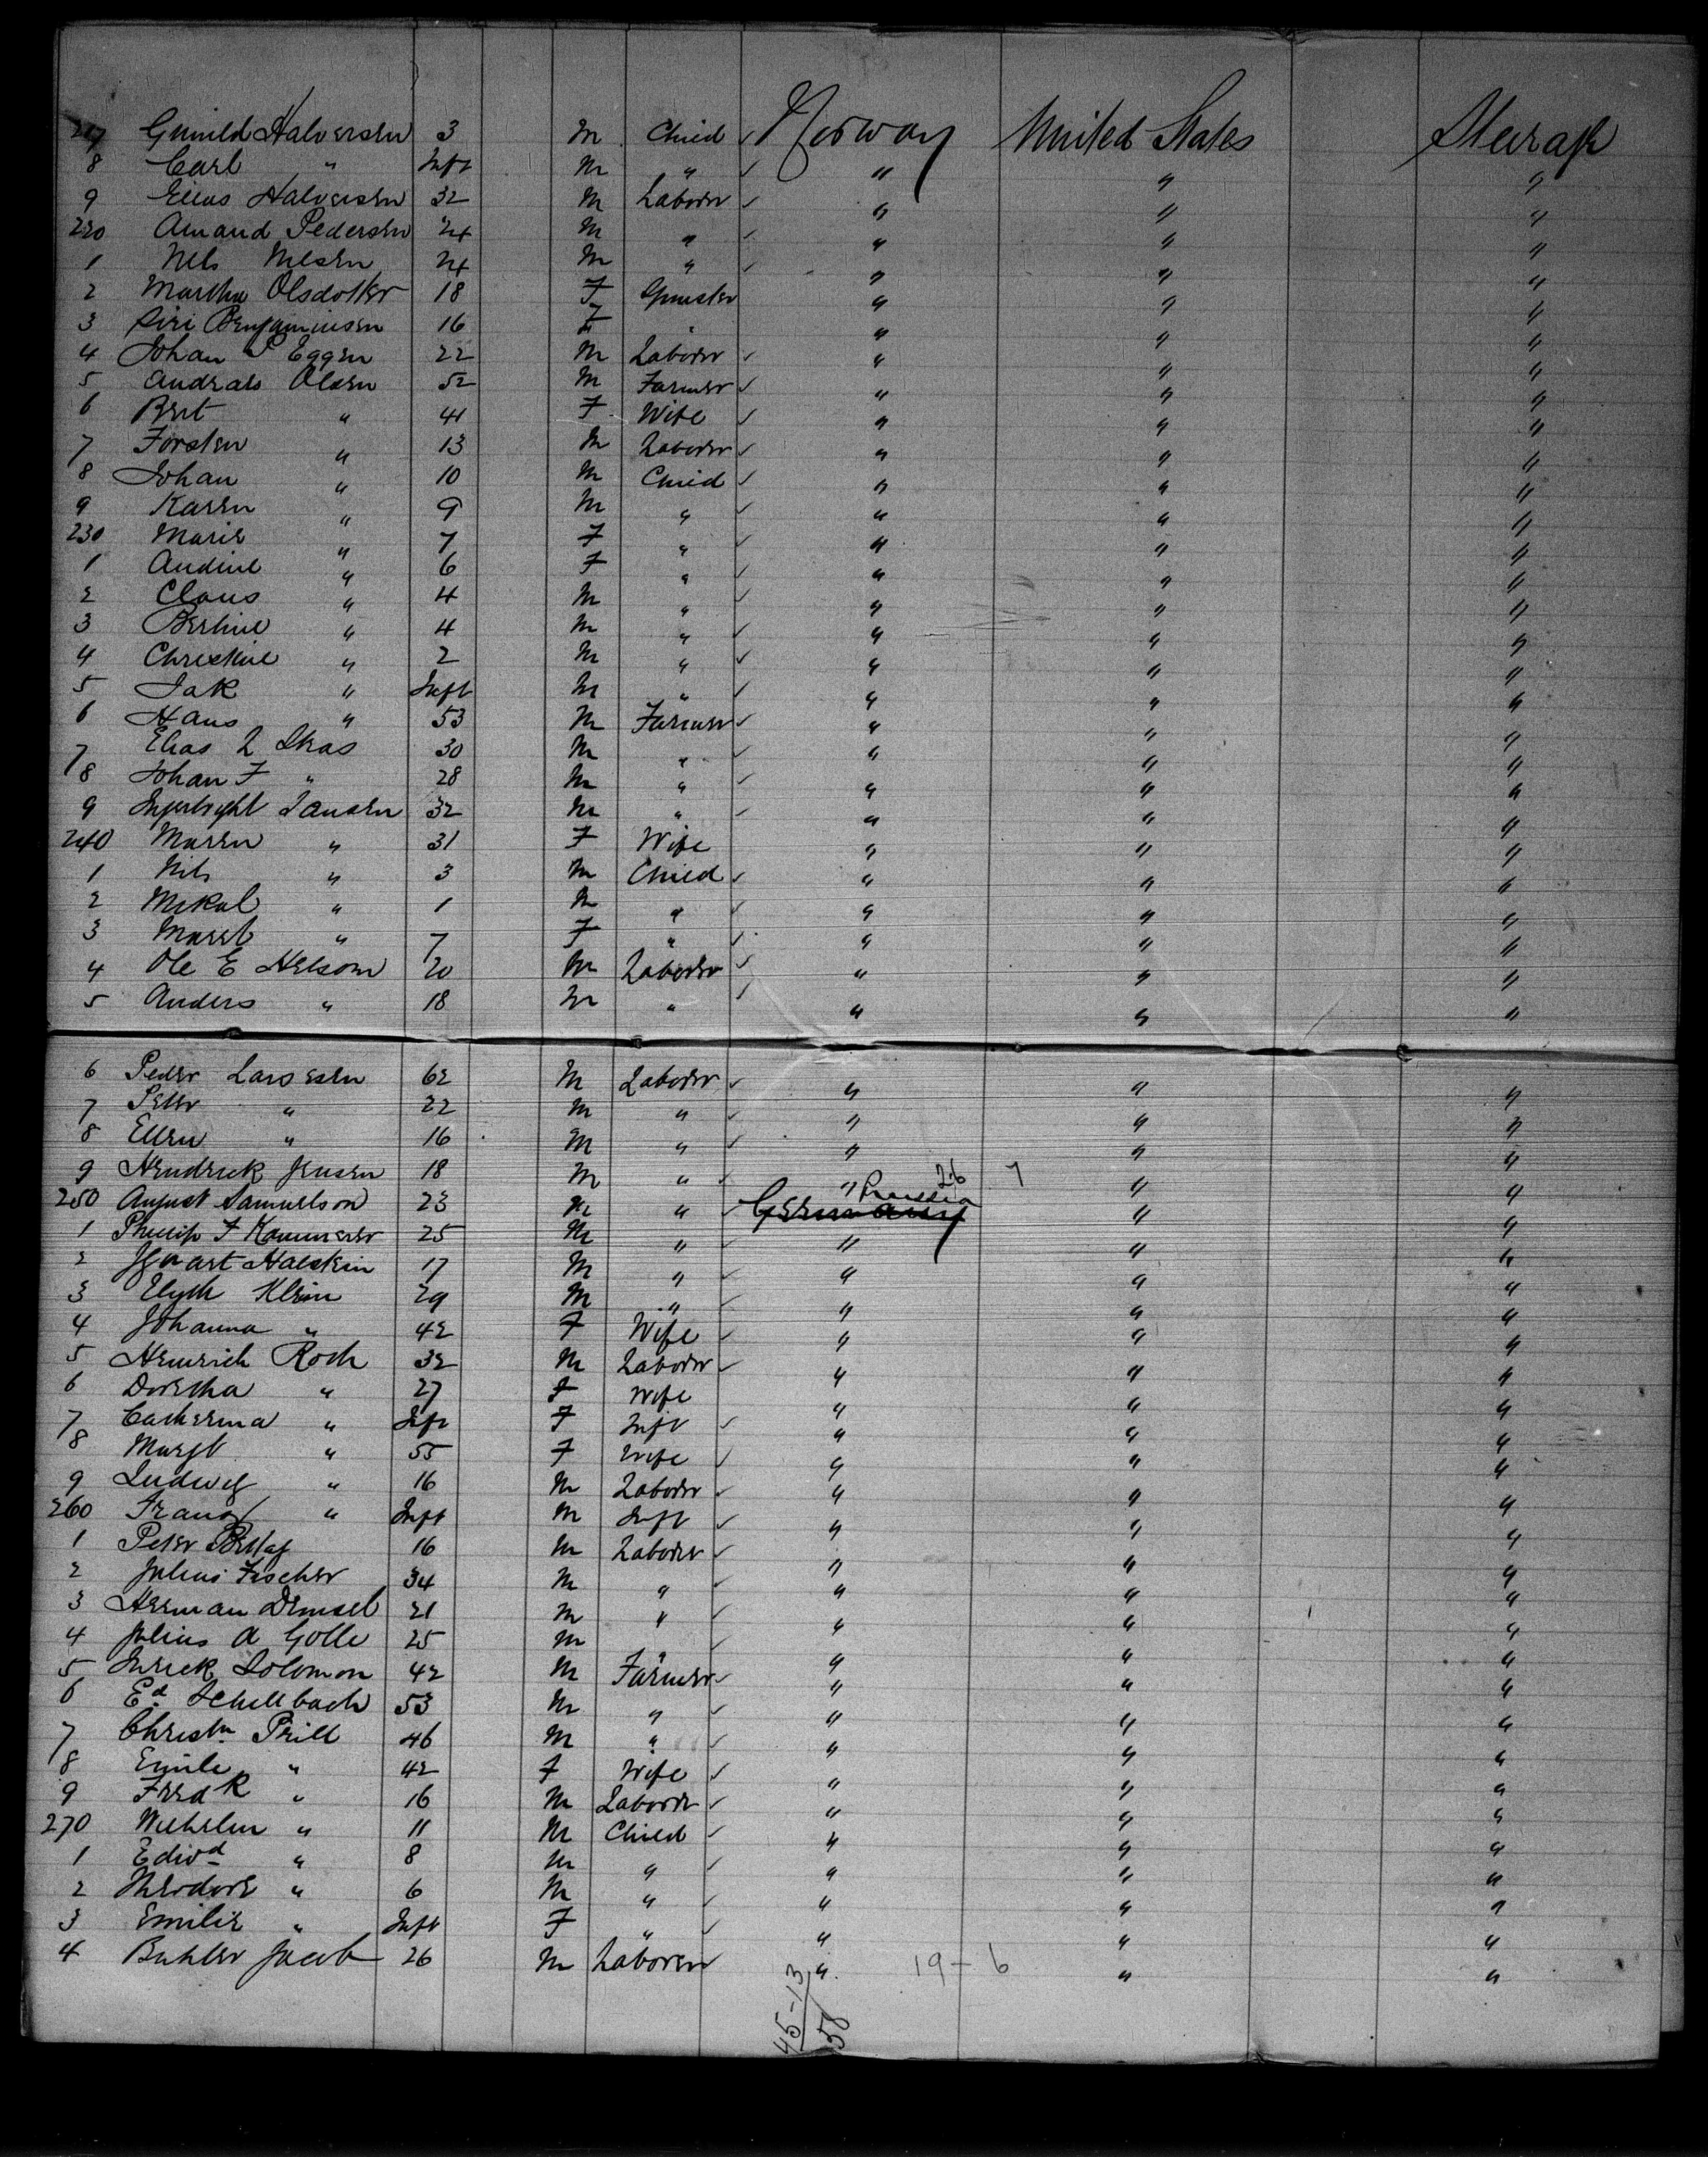 217 Gunild Halversen 3 M Child ✓ Norway United States Steerage
8 Carl " Inft M " ✓ " " "
9 Elias Halversen 32 M Laborer ✓ " " "
220 Amand Pedersen 24 M " ✓ " " "
1 Nels Nelsen 24 M " ✓ " " "
2 Martha Olsdotter 18 F Spinster " " "
3 Siri Benjaminsen 16 F " " " "
4 Johan P Eggen 22 M Laborer ✓ " " "
5 Andreas Olsen 52 M Farmer ✓ " " "
6 Brit " 41 F Wife ✓ " " "
7 Torsten " 13 M Laborer ✓ " " "
8 Johan " 10 M Child ✓ " " "
9 Karen " 9 M " " " "
230 Marie " 7 F " ✓ " " "
1 Andine " 6 F " ✓ " " "
2 Claus " 4 M " ✓ " " "
3 Berline " 4 M " ✓ " " "
4 Christine " 2 M " ✓ " " "
5 Jak " Inft M " ✓ " " "
6 Hans " 53 M Farmer ✓ " " "
7 Elias L 30 M " ✓ " " "
8 Johan F " 28 M " ✓ " " "
9 Jansen 32 M " ✓ " " "
240 Maren " 31 F Wife " " "
1 Nils " 3 M Child ✓ " " "
2 Mikal " 1 M " ✓ " " "
3 Maret " 7 F " ✓ " " "
4 Ole E Nelson 20 M Laborer ✓ " " "
5 Anders " 18 M " ✓ " " "
6 Peder Larsesen 62 M Laborer ✓ " " "
7 Peter " 22 M " ✓ " " "
8 Ellen " 16 M " ✓ " " "
9 Hendrick Jensen 18 M " ✓ " 26 7 " "
250 August Samuelson 23 M " ✓ Germany Prussia " "
1 Phillip F Kammerer 25 M " " " "
2 Halstein 17 M " ✓ " " "
3 Klein 29 M " ✓ " " "
4 Johanna " 42 F Wife ✓ " " "
5 Heinrich Roch 32 M Laborer ✓ " " "
6 Doretha " 27 F Wife " " "
7 Catherina " Inft F Inft ✓ " " "
8 Margt " 55 F Wife ✓ " " "
9 Ludwig " 16 M Laborer ✓ " " "
260 Franz " Inft M Inft ✓ " " "
1 Peter 16 M Laborer ✓ " " "
2 Julius Fischer 34 M " ✓ " " "
3 Herman 21 M " ✓ " " "
4 Julius A Golle 25 M " ✓ " " "
5 Solomon 42 M Farmer ✓ " " "
6 Ed Schellbach 53 M " ✓ " " "
7 Christn Prill 46 M " ✓ " " "
8 Emile " 42 F Wife ✓ " " "
9 Fredk " 16 M Laborer ✓ " " "
270 Wilhelm " 11 M Child ✓ " " "
1 Edwd " 8 M " ✓ " " "
2 Theodore " 6 M " ✓ " " "
3 Emilie " Inft F " ✓ " " "
4 Buhler Jacob 26 M Laborer " 19-6 " "
45-13
58